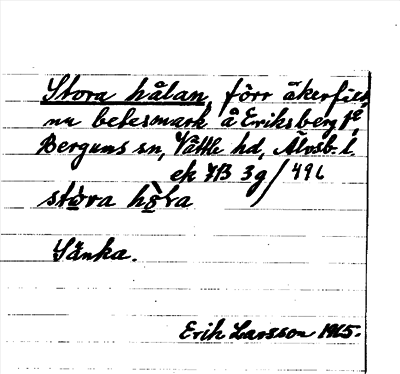 Stora hålan, förr åkerfält,
nu betesmark å Eriksberg 1²,
Bergums sn, Vättle hd, Älvsb. l.
ek 7B 3g/496
stòra hò̱la
Sänka.
Erik Larsson 1965.